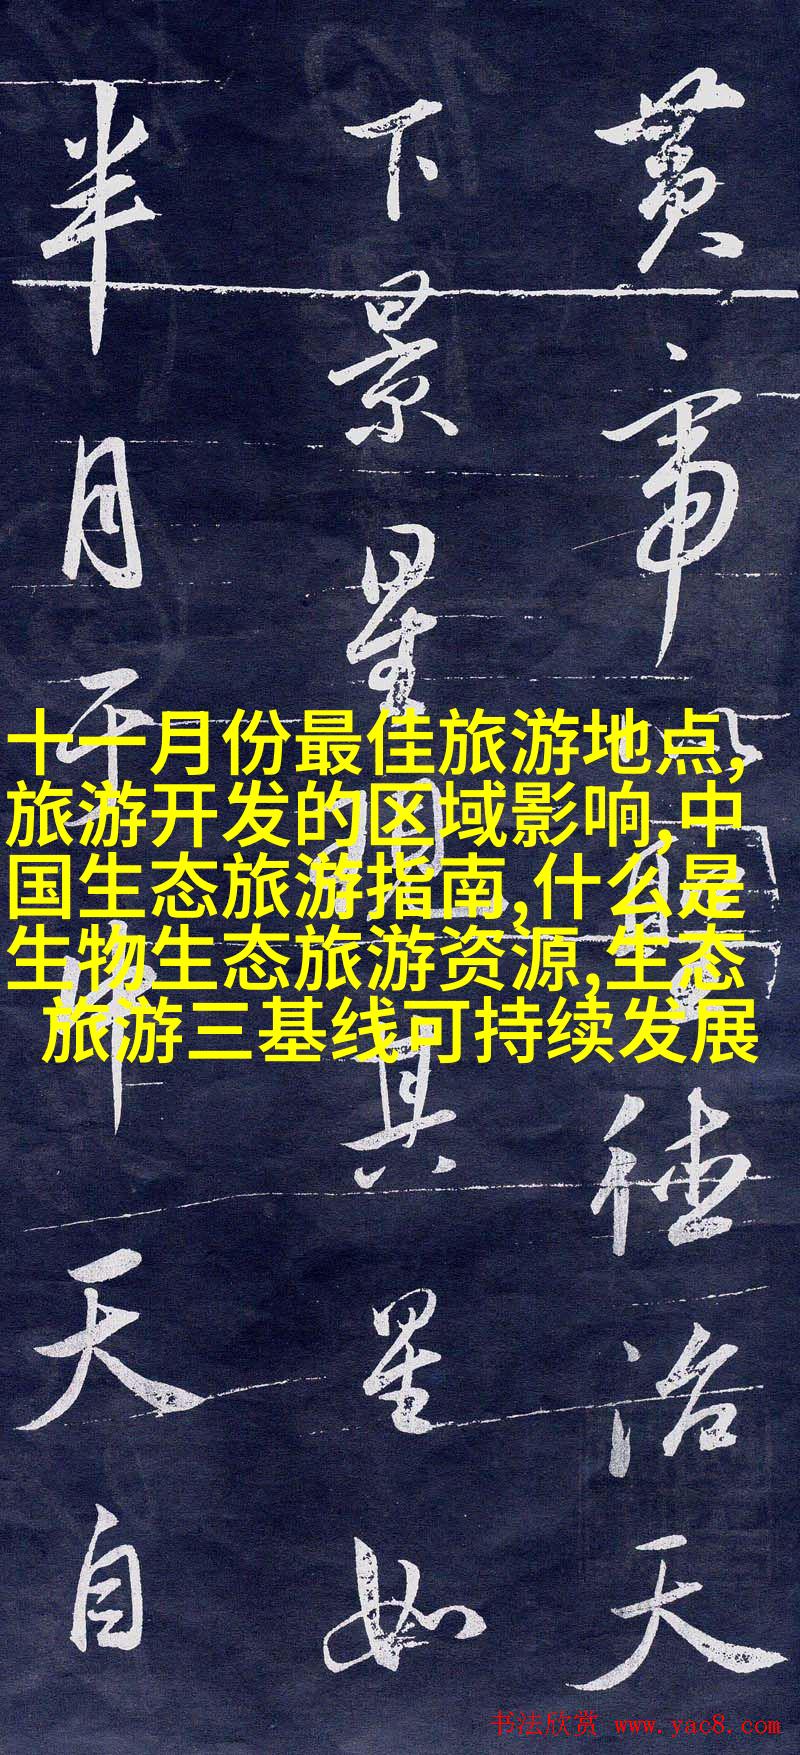 黄帝以聖德治天
下景星其星如
半月于天自
十一月份最佳旅游地点,
旅游开发的区域影响,中
国生态旅游指南,什么是
生物生态旅游资源,生态
旅游三基线可持续发展
书法欣赏 www.yac8.com